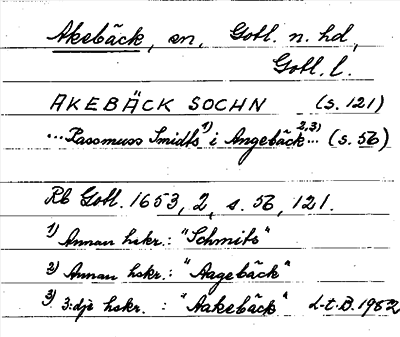 Akebäck, sn, Gotl. n. hd,
Gotl. l.
AKEBÄCK SOCHN (s. 121)
...Rassmuss Smidts 1) i Angebäck 2,3) ... (s. 56)
Rb Gotl. 1653, 2, s. 56, 121.
1) Annan hskr.: "Schmits"
2) Annan hskr.: "Aagebäck"
3) 3:dje hskr. : "Aakebäck" L-t.B. 1962